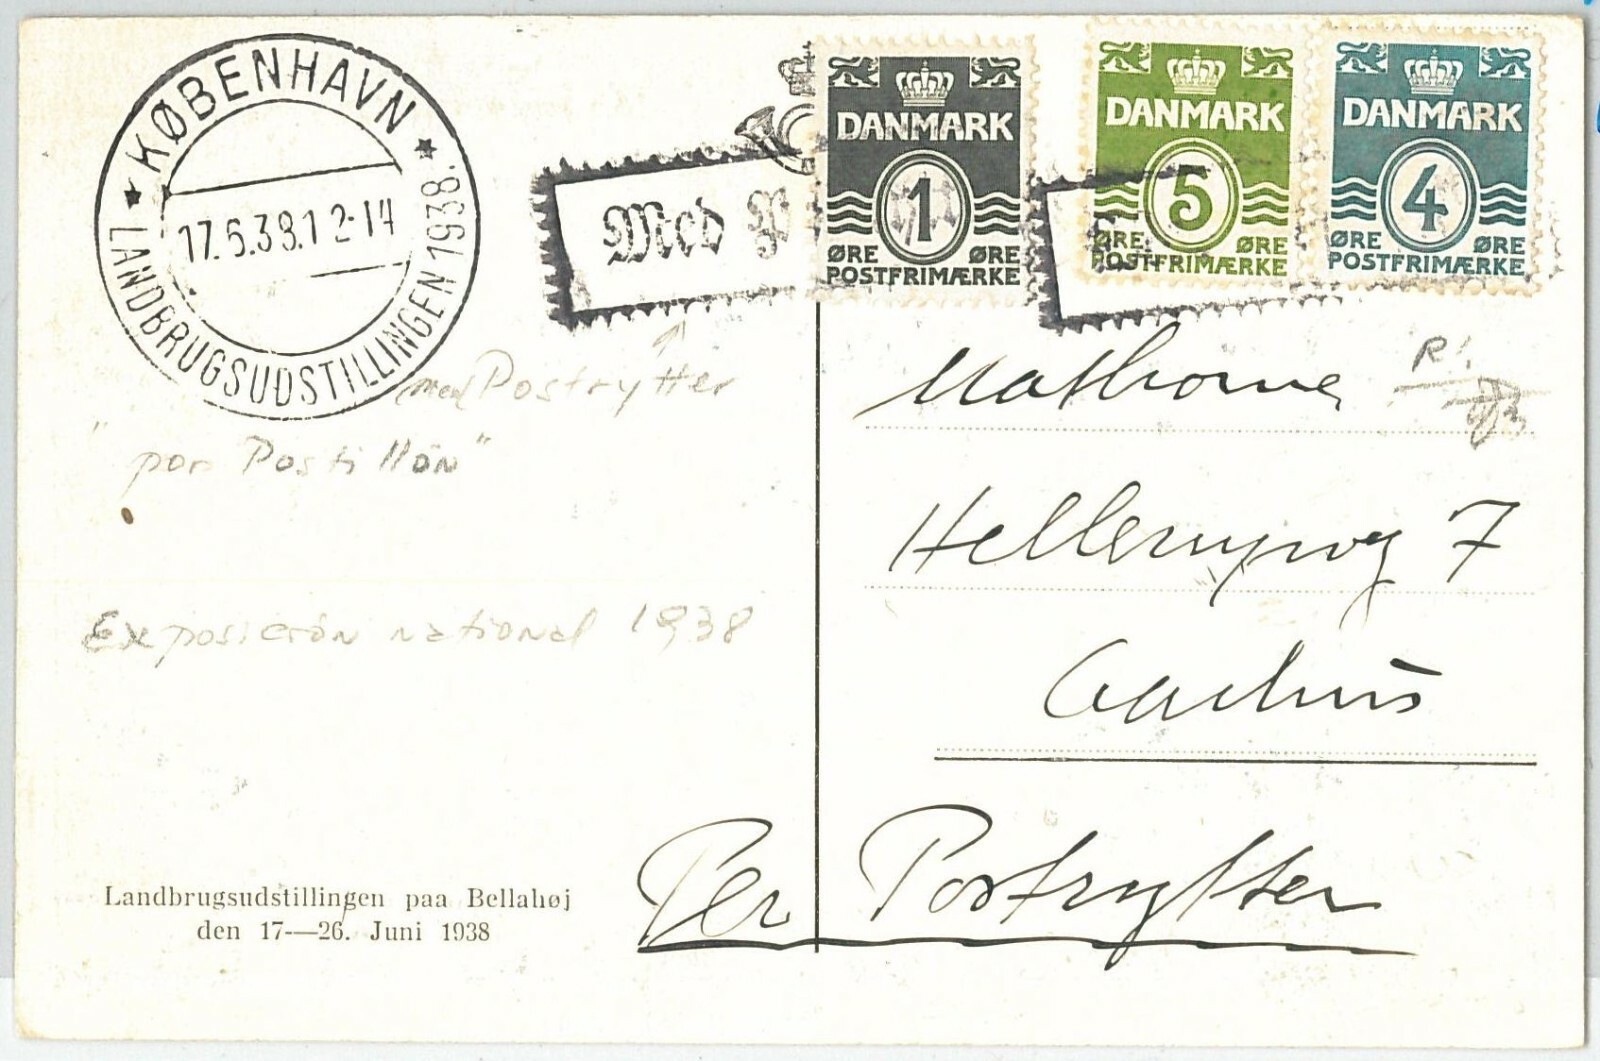 KØBENHAVN
17.6.38.12-14
LANDBRUGSUDSTILLINGEN 1938.
Med P
DANMARK
1
ØRE ØRE
POSTFRIMÆRKE
DANMARK
5
ØRE ØRE
POSTFRIMÆRKE
DANMARK
4
ØRE ØRE
POSTFRIMÆRKE
med Postrytter
"por Postillón"
Exposición national 1938
7
Aarhus
Per Postrytter
Landbrugsudstillingen paa Bellahøj
den 17—26. Juni 1938